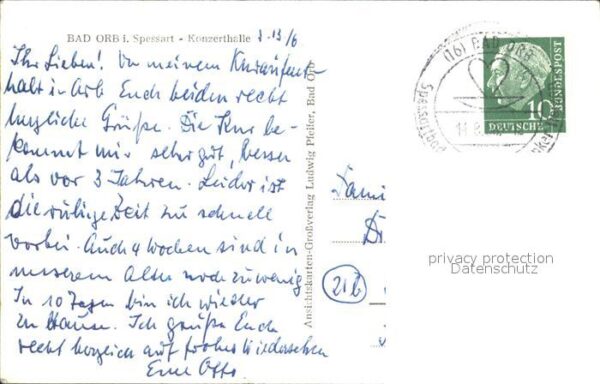 BAD ORB i. Spessart - Konzerthalle
Ihr Lieben! Von meinem Kuraufent-
halt in Orb Euch beiden recht
herzliche Grüße. Die Kur be-
kommt mir sehr gut, besser
als vor 3 Jahren. Leider ist
die ruhige Zeit zu schnell
vorbei. Auch 4 Wochen sind in
unserem Alter noch zu wenig
In 10 Tagen bin ich wieder
zu Hause. Ich grüße Euch
recht herzlich auf frohes Wiedersehen
Euer Otto.
Ansichtskarten-Großverlag Ludwig Pfeifer, Bad Orb
(16) BAD ORB
10
DEUTSCHE
BUNDESPOST
Fami
21b
privacy protection
Datenschutz